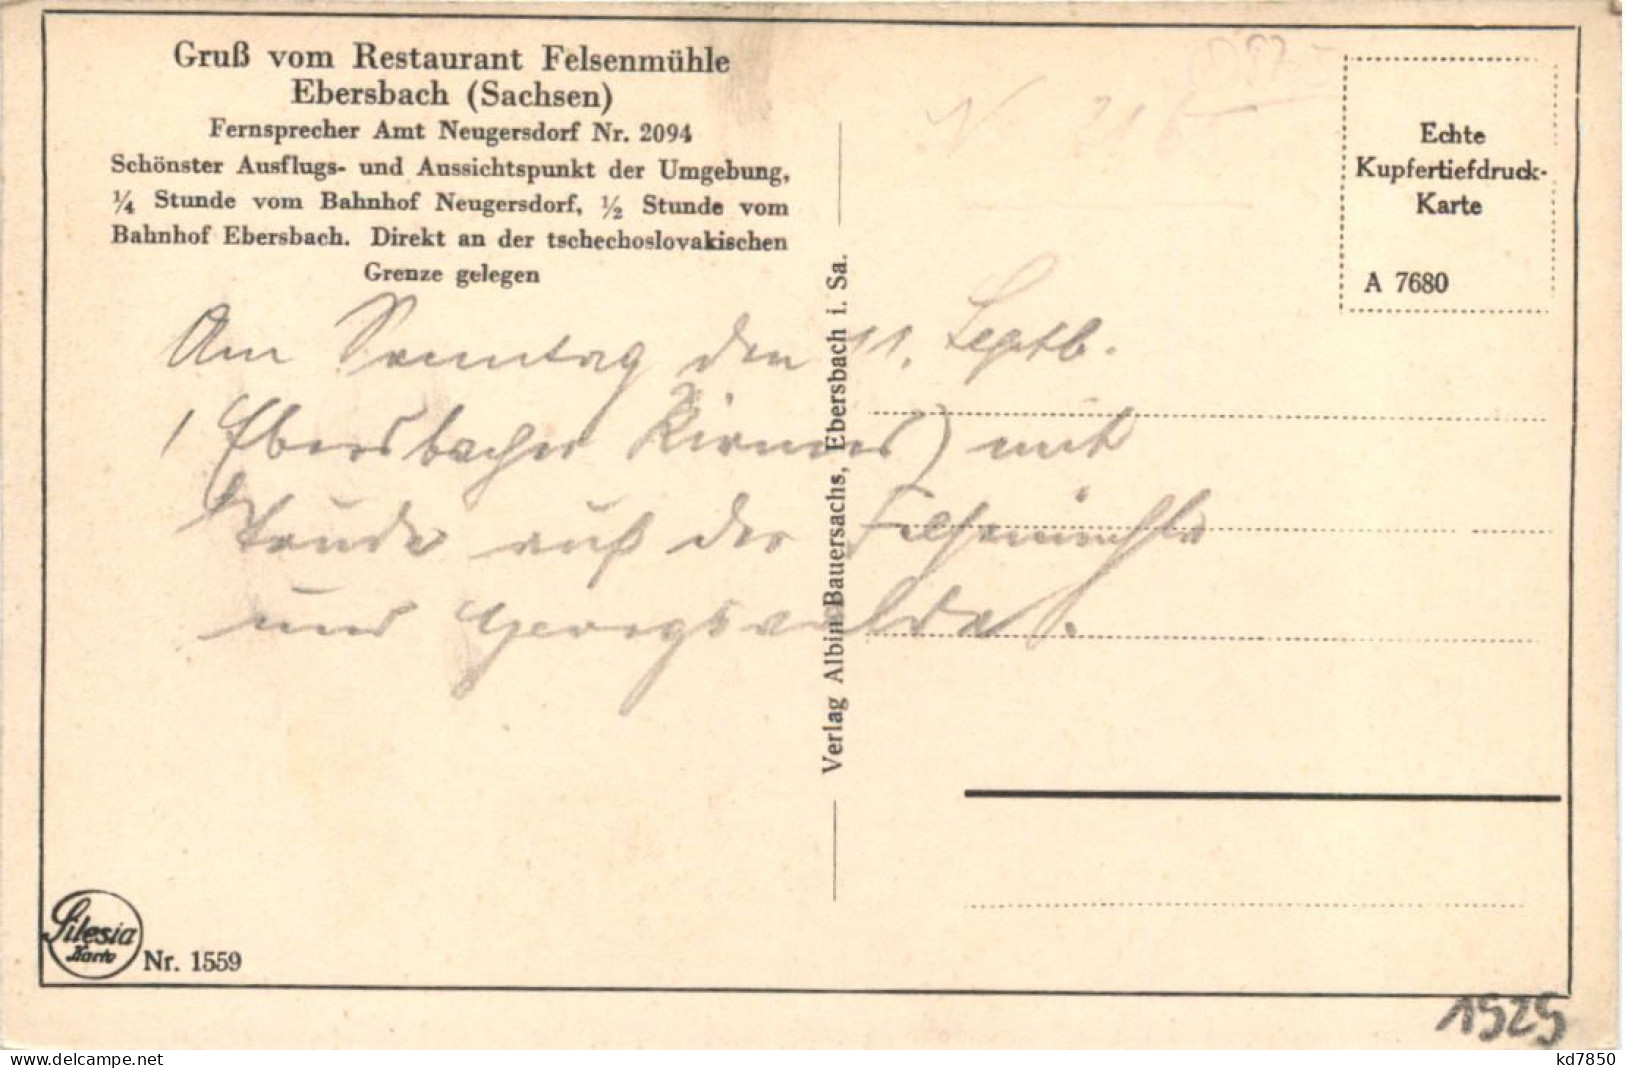 Gruß vom Restaurant Felsenmühle
Ebersbach (Sachsen)
Fernsprecher Amt Neugersdorf Nr. 2094
Schönster Ausflugs- und Aussichtspunkt der Umgebung,
¼ Stunde vom Bahnhof Neugersdorf, ½ Stunde vom
Bahnhof Ebersbach. Direkt an der tschechoslovakischen
Grenze gelegen
Am Sonntag den 11. Septb.
(Ebersbacher Kirmes) mit
auf der Felsenmühle
und Georgswalde.
Verlag Albin Bauersachs, Ebersbach i. Sa.
Echte
Kupfertiefdruck-
Karte
A 7680
Silesia
Karte
Nr. 1559
1525
www.delcampe.net
kd7850